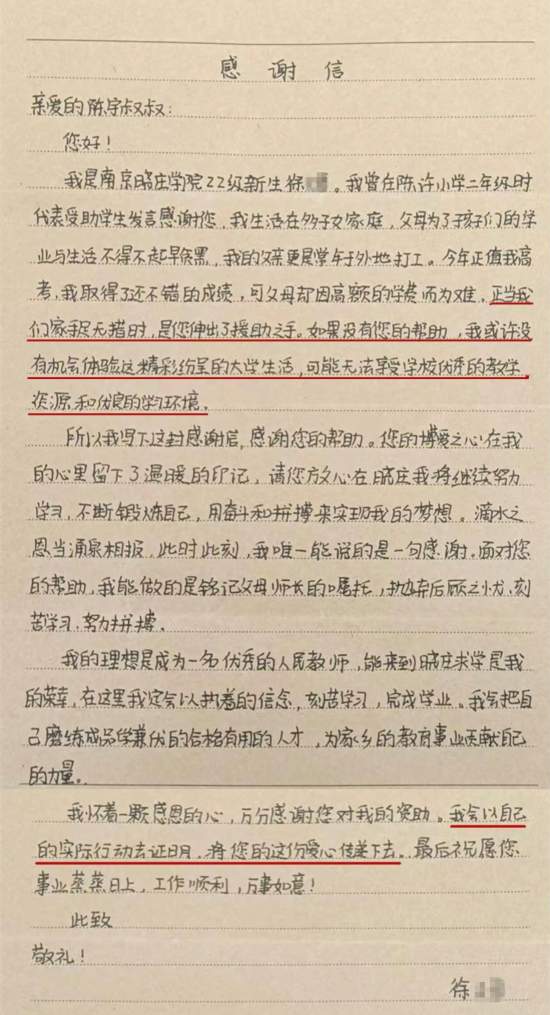 感谢信
亲爱的陈宇叔叔：
您好！
我是南京晓庄学院22级新生徐。我曾在陈许小学二年级时
代表受助学生发言感谢您，我生活在多子女家庭，父母为了孩子们的学
业与生活不得不起早贪黑，我的父亲更是常年于外地打工。今年正值我高
考，我取得了还不错的成绩，可父母却因高额的学费而为难，正当我
们家手足无措时，是您伸出了援助之手。如果没有您的帮助，我或许没
有机会体验这精彩纷呈的大学生活，可能无法享受学校优秀的教学
资源和优良的学习环境。
所以我写下这封感谢信，感谢您的帮助。您的博爱之心在我
的心里留下了温暖的印记，请您放心在晓庄我将继续努力
学习，不断锻炼自己，用奋斗和拼搏来实现我的梦想。滴水之
恩当涌泉相报，此时此刻，我唯一能说的是一句感谢。面对您
的帮助，我能做的是铭记父母师长的嘱托，抛弃后顾之忧、刻
苦学习、努力拼搏。
我的理想是成为一名优秀的人民教师，能来到晓庄求学是我
的荣幸，在这里我定会以执着的信念，刻苦学习，完成学业。我会把自
己磨练成品学兼优的合格有用的人才，为家乡的教育事业贡献自己
的力量。
我怀着一颗感恩的心，万分感谢您对我的资助。我会以自己
的实际行动去证明，将您的这份爱心传递下去。最后祝愿您
事业蒸蒸日上，工作顺利，万事如意！
此致
敬礼！
徐